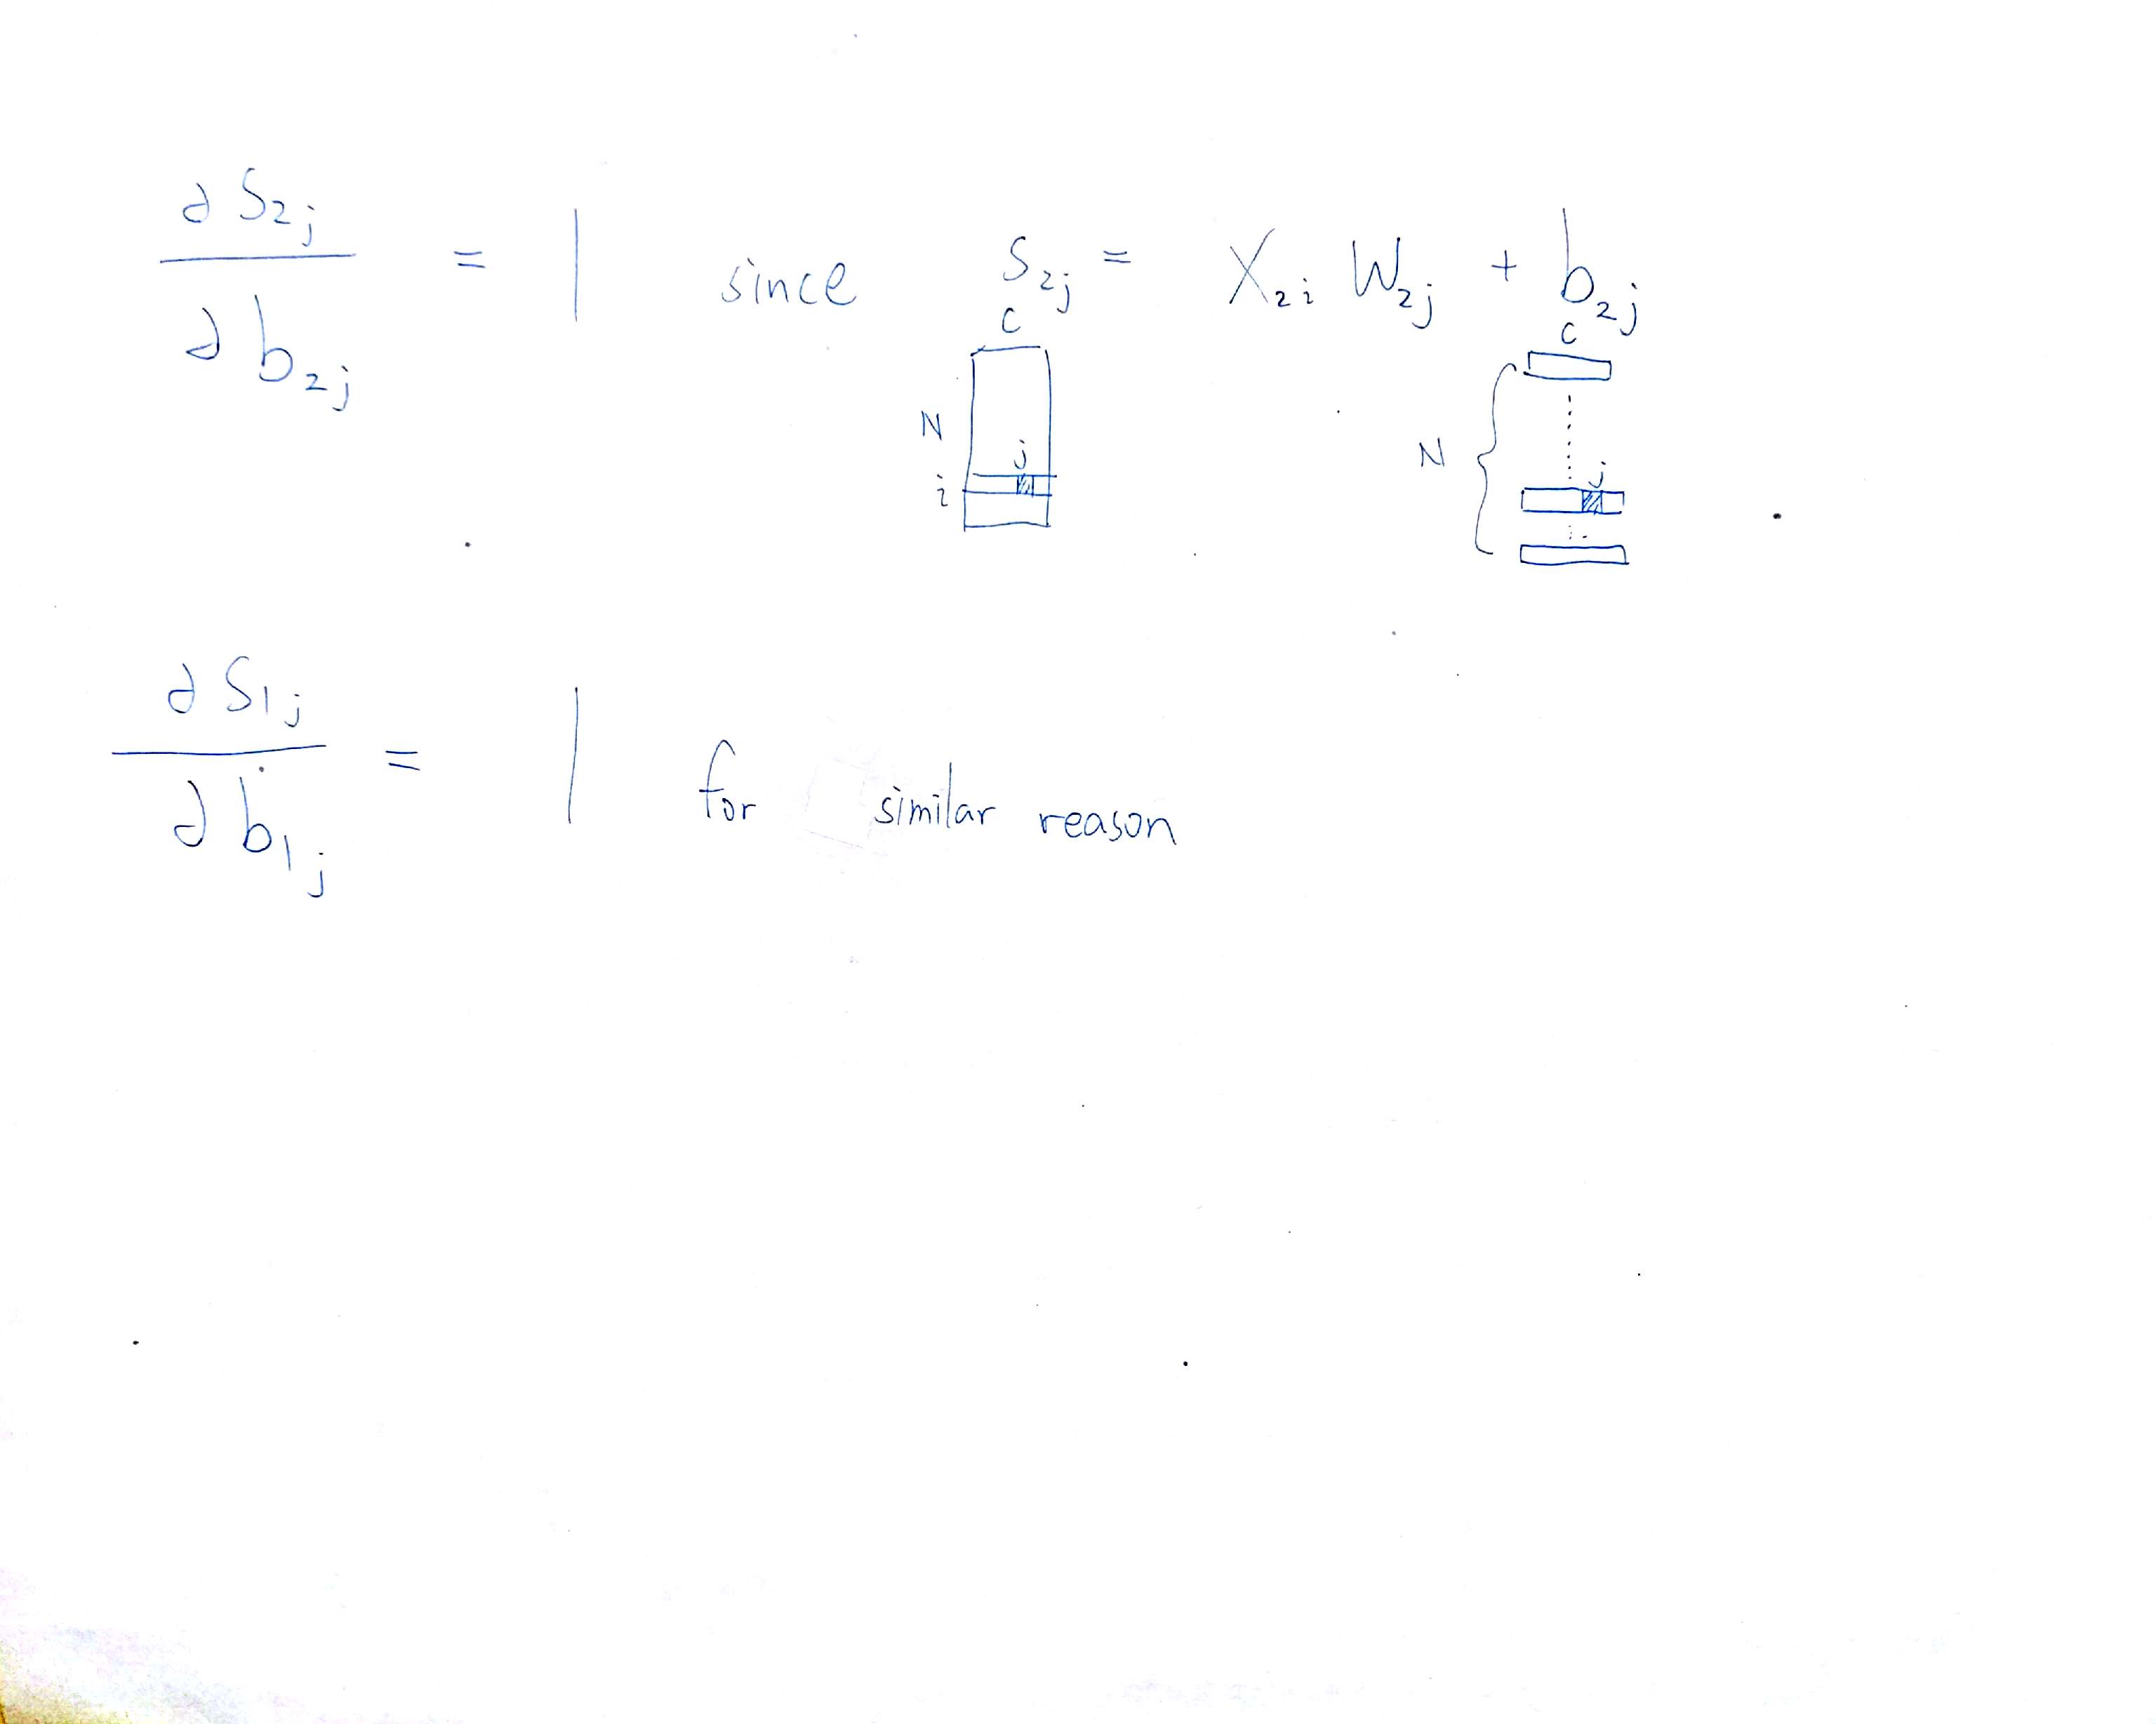 ∂S₂ⱼ / ∂b₂ⱼ = 1 since S₂ⱼ = X₂ᵢ W₂ⱼ + b₂ⱼ
C C
N j N j
i
∂S₁ⱼ / ∂b₁ⱼ = 1 for similar reason